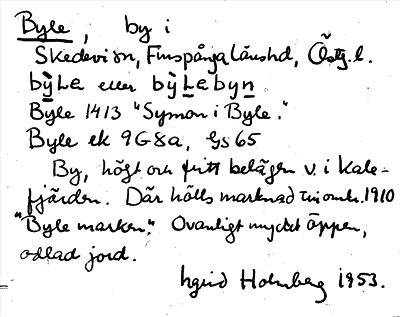 Byle, by i
Skedevi sn, Finspånga länshd, Östg. l.
bẏ̠̀La eller bỳ̠Labyn
Byle 1413 "Symon i Byle."
Byle ek 9G8a, Gs 65
By, högt och fritt belägen v. i Kale-
fjärden. Där hölls marknad omkr. 1910
"Byle marken." Ovanligt mycket öppen,
odlad jord.
Ingrid Holmberg 1953.